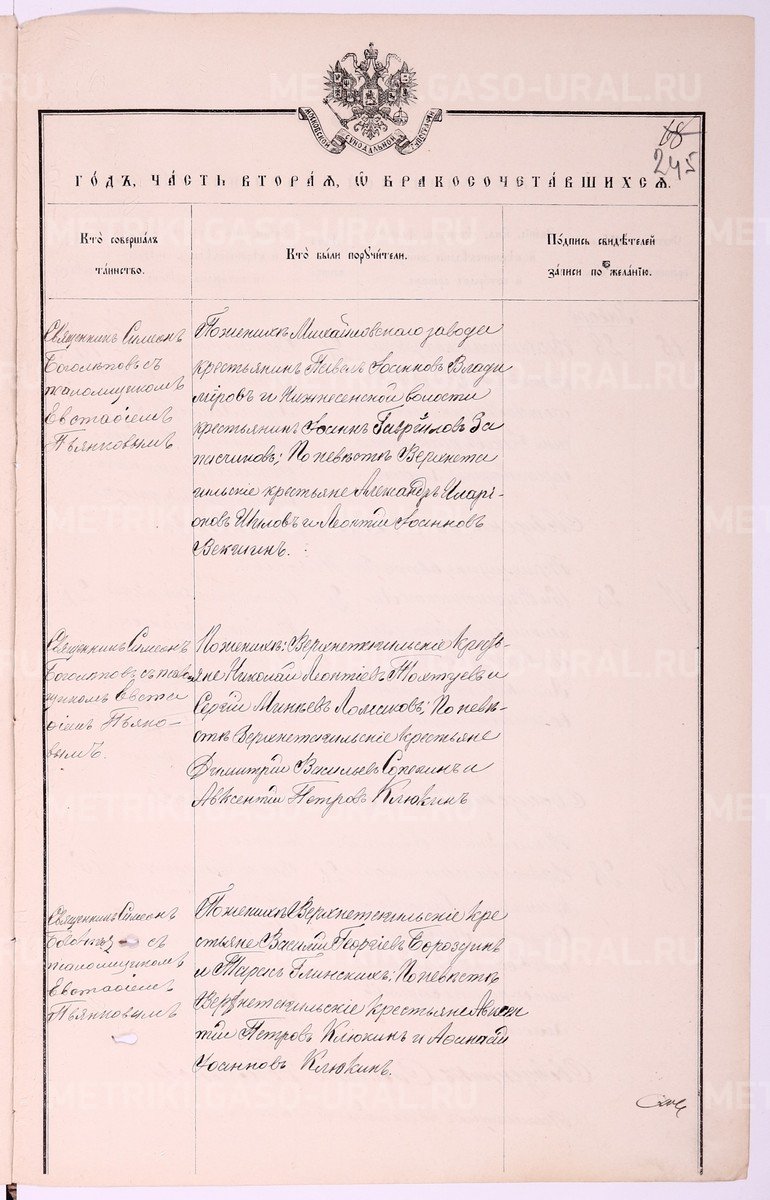 МОСКОВСКОЙ СѴНОДАЛЬНОЙ ТѴПОГРАФІИ
68
245
ГО́ДЪ, ЧА́СТЬ ВТОРА́Я, Ѽ БРАКОСОЧЕТА́ВШИХСѦ.
Кто̀ соверша́лъ
та́инство.
Кто̀ бы́ли порꙋчи́тели.
По́дпись свидѣ́телей
за́писи по жела́нію.
Священникъ Симеонъ
Боголѣповъ съ
псаломщикомъ
Евстаѳіемъ
Пьянковымъ.
По женихѣ Михайловскаго завода
крестьянинъ Павелъ Іоанновъ Влади
міровъ и Нижнесенской волости
крестьянинъ Іоаннъ Гавріиловъ За
пасчиковъ; По невѣстѣ Верхнета
гильскіе крестьяне Александръ Иларі-
оновъ Шиловъ и Леонтій Іоанновъ
Векшинъ.
Священникъ Симеонъ
Боголѣповъ съ псало
мщикомъ Евста
ѳіемъ Пьянко-
вымъ.
По женихѣ: Верхнетагильскіе кресть-
яне Николай Леонтіевъ Толтуевъ и
Сергій Минѣевъ Ломаковъ; По невѣ-
стѣ Верхнетагильскіе крестьяне
Димитрій Васильевъ Сопегинъ и
Авксентій Петровъ Клюкинъ
Священникъ Симеонъ
съ
псаломщикомъ
Евстаѳіемъ
Пьянковымъ
По женихѣ Верхнетагильскіе кре
стьяне Василій Георгіевъ Бороздинъ
и Тарасъ Глинскихъ; По невѣстѣ
Верхнетагильскіе крестьяне Авксен
тій Петровъ Клюкинъ и
Іоанновъ Клюкинъ.
METRIKI.GASO-URAL.RU